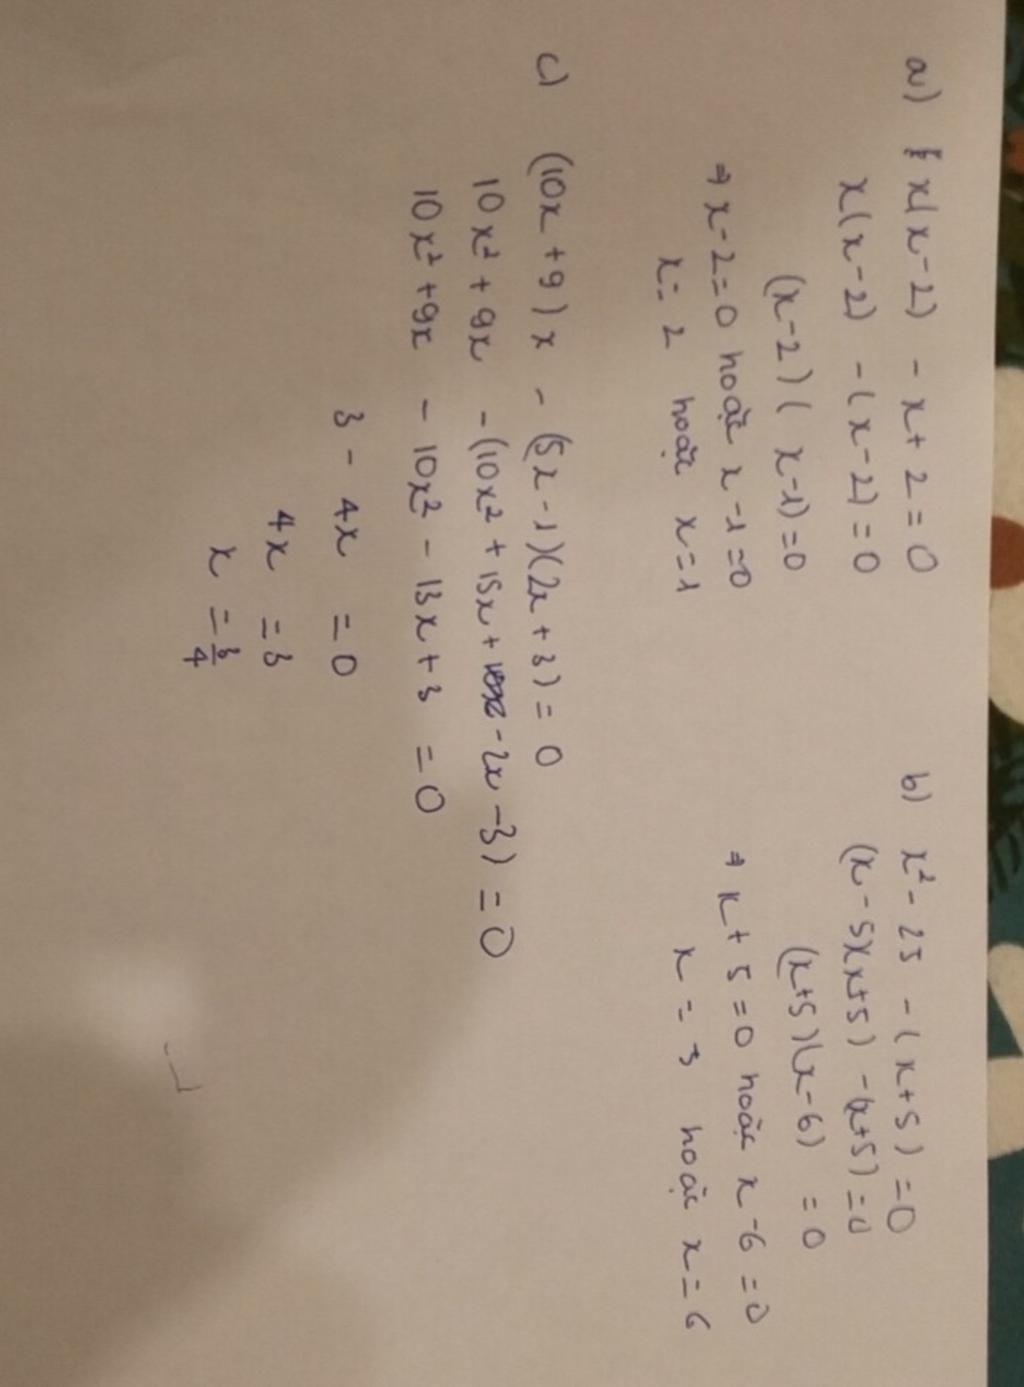 a) x(x-2) - x + 2 = 0
x(x-2) - (x-2) = 0
(x-2)(x-1) = 0
⇒ x-2=0 hoặc x-1=0
x = 2 hoặc x=1
b) x² - 25 - (x+5) = 0
(x-5)(x+5) - (x+5) = 0
(x+5)(x-6) = 0
⇒ x+5=0 hoặc x-6=0
x = 5 hoặc x=6
c) (10x+9)x - (5x-1)(2x+3) = 0
10x² + 9x - (10x² + 15x + - 2x - 3) = 0
10x² + 9x - 10x² - 13x + 3 = 0
3 - 4x = 0
4x = 3
x = 3/4